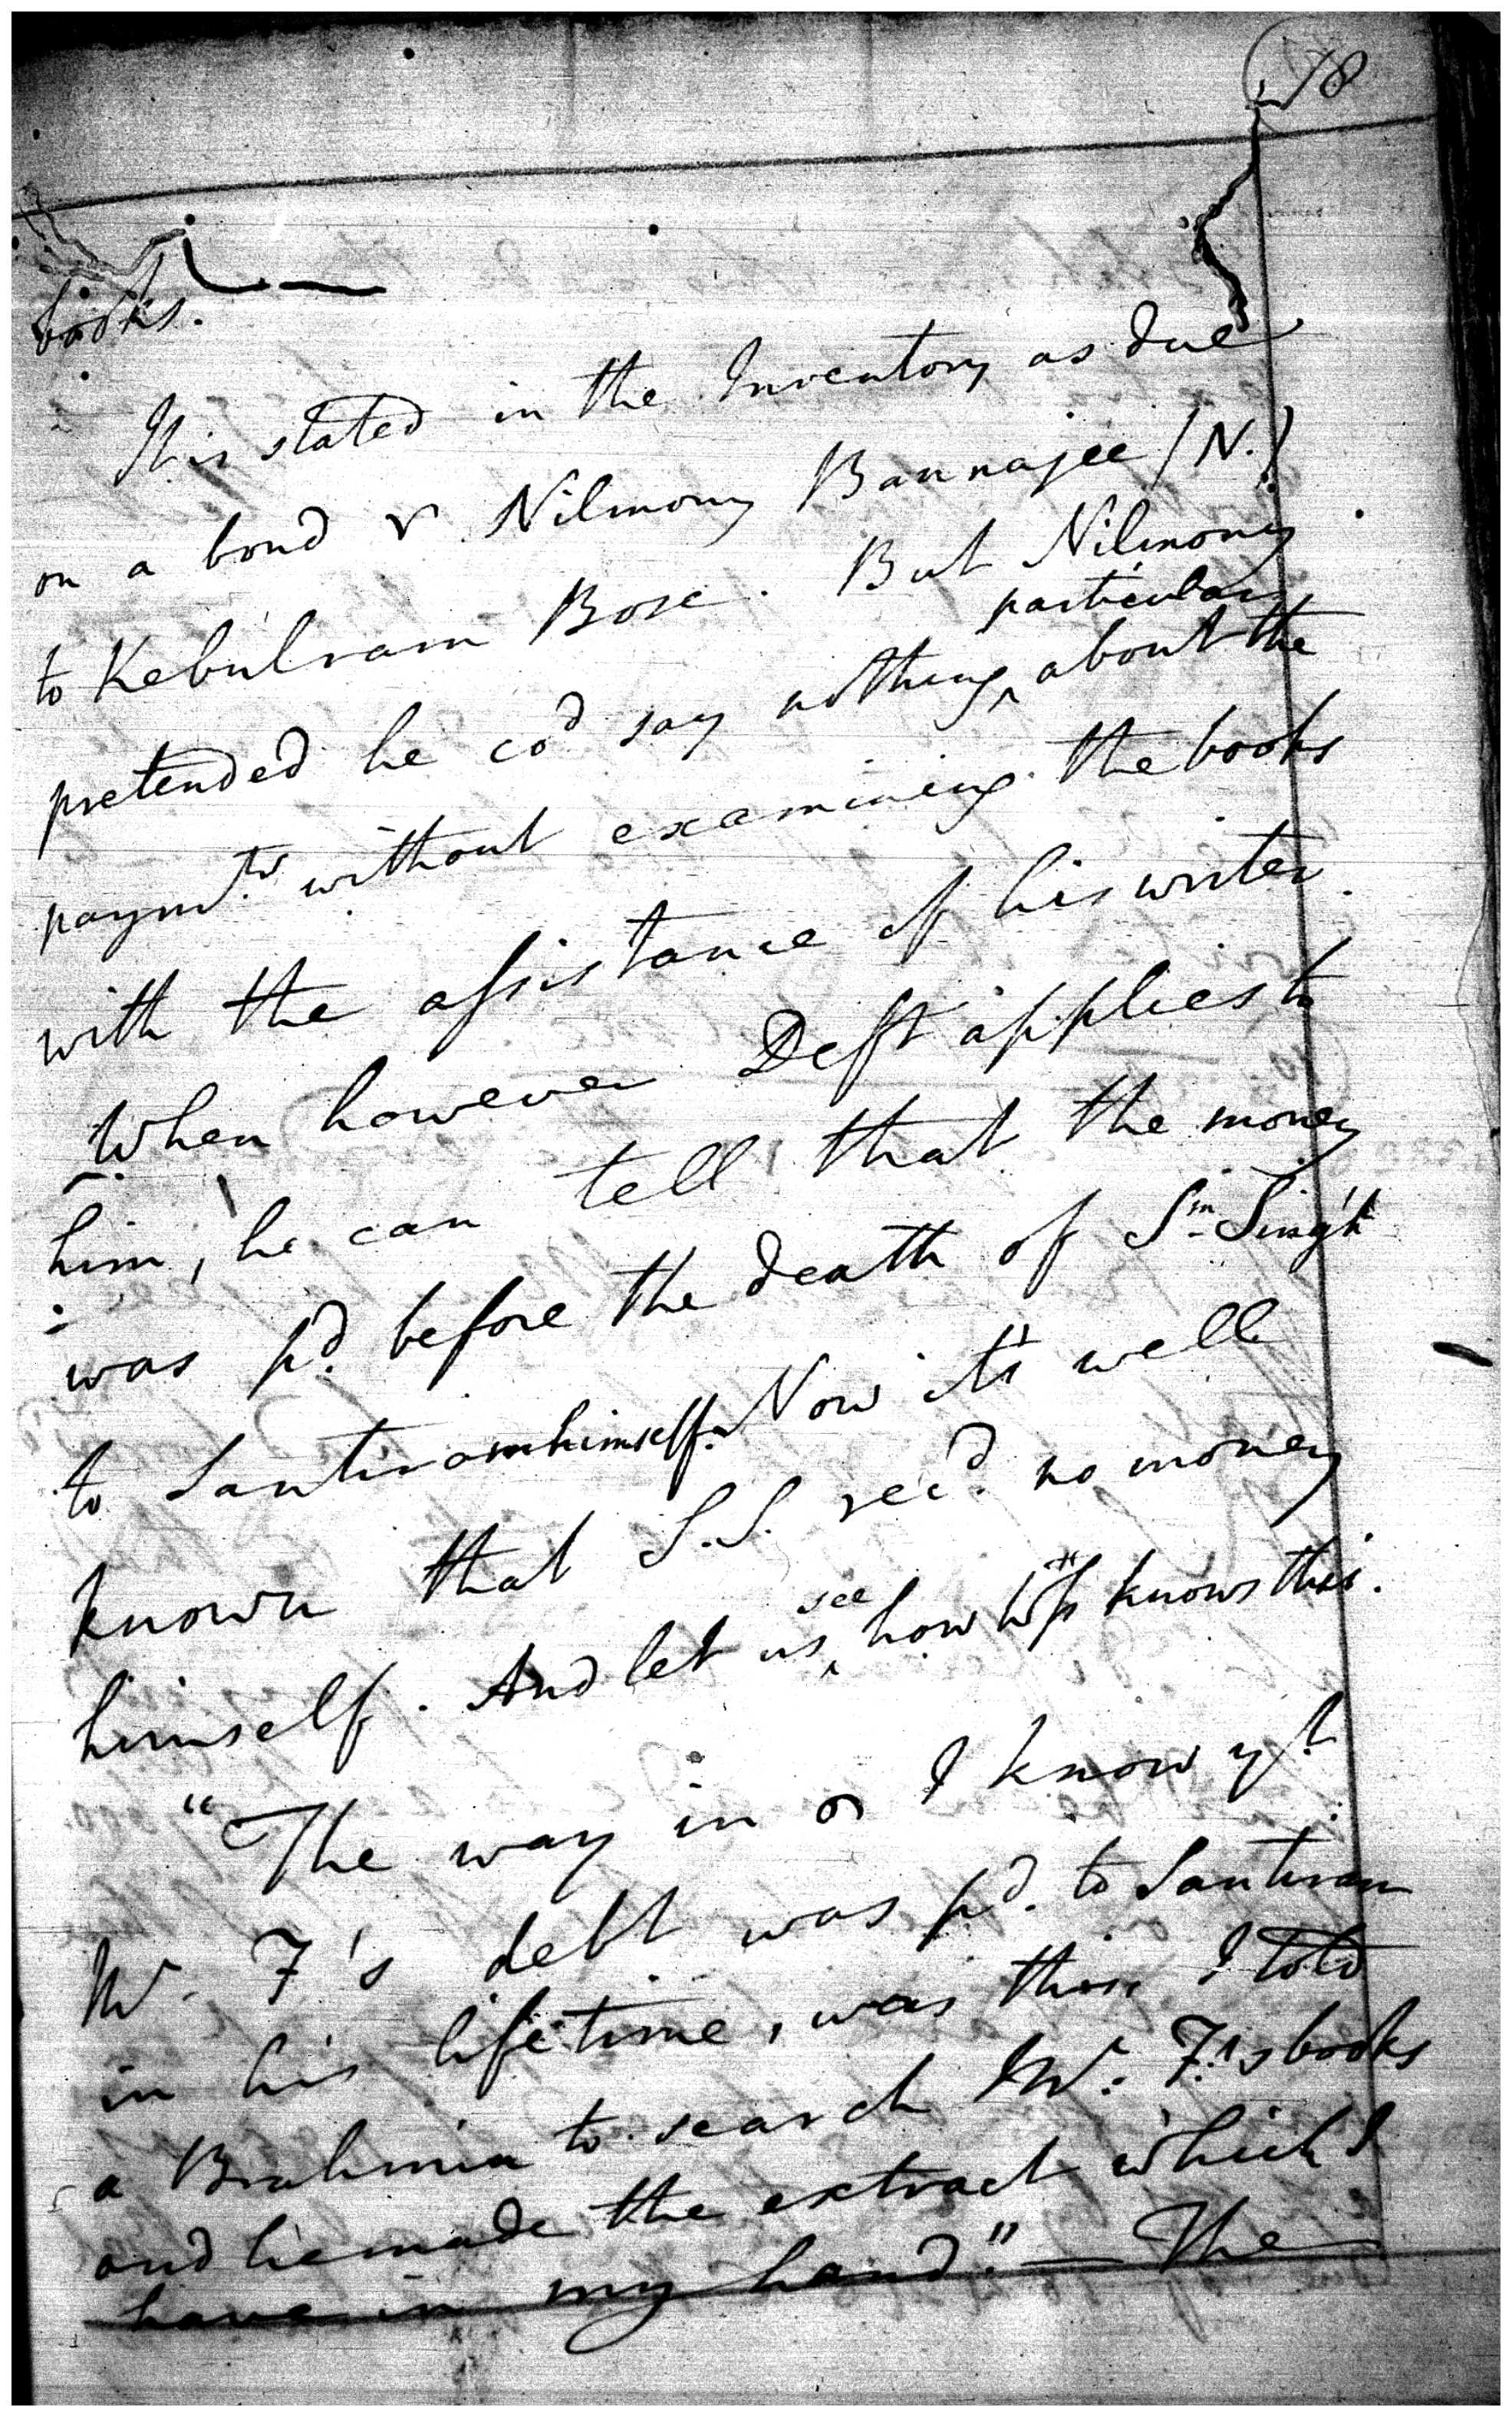 18
books.
It is stated in the Inventory as due
on a bond Nilmony Bannajee (N.)
to Kebulram Bose. But Nilmony
particular
pretended he cod say nothing ^ about the
paymts. without examining the books
with the assistance of his writer.
When however Deft applies to
him, he can tell that the money
was pd. before the death of Sm Singh
to Santiram himself. Now it's well
known that S.S. recd. no money
see
himself. And let us ^ how knows this.
"The way in I know yt
W. F's debt was pd. to Santiram
in his lifetime, was this I told
a Brahmin to search W. F.'s books
and he made the extract which I
have in my hand." — The